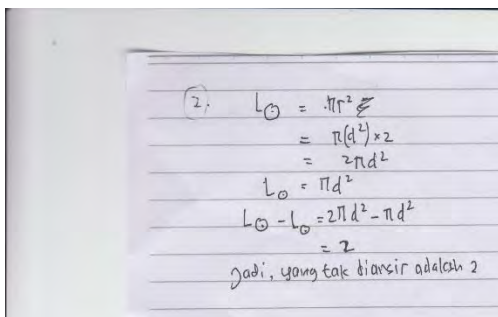 2. L⊙ = πr²
= π(d²)×2
= 2πd²
L⊙ = πd²
L⊙ - L⊙ = 2πd² - πd²
= 2
Jadi, yang tak diarsir adalah 2